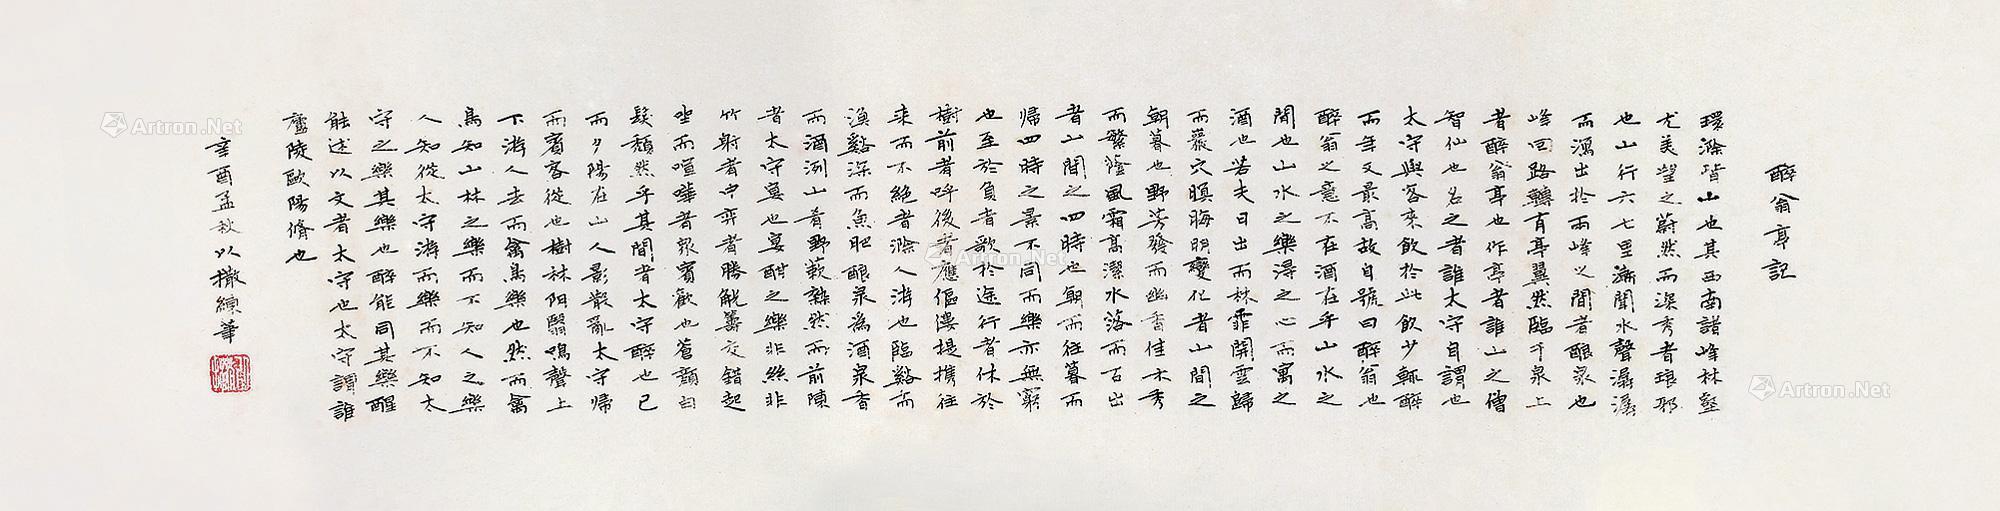 醉翁亭記
環滁皆山也其西南諸峰林壑
尤美望之蔚然而深秀者琅邪
也山行六七里漸聞水聲潺潺
而瀉出於兩峰之間者釀泉也
峰回路轉有亭翼然臨于泉上
者醉翁亭也作亭者誰山之僧
智仙也名之者誰太守自謂也
太守與客來飲於此飲少輒醉
而年又最高故自號曰醉翁也
醉翁之意不在酒在乎山水之
間也山水之樂得之心而寓之
酒也若夫日出而林霏開雲歸
而巖穴暝晦明變化者山間之
朝暮也野芳發而幽香佳木秀
而繁陰風霜高潔水落而石出
者山間之四時也朝而往暮而
歸四時之景不同而樂亦無窮
也至於負者歌於途行者休於
樹前者呼後者應傴僂提攜往
來而不絕者滁人游也臨谿而
漁谿深而魚肥釀泉為酒泉香
而酒洌山肴野蔌雜然而前陳
者太守宴也宴酣之樂非絲非
竹射者中弈者勝觥籌交錯起
坐而喧嘩者眾賓歡也蒼顏白
髮頹然乎其間者太守醉也已
而夕陽在山人影散亂太守歸
而賓客從也樹林陰翳鳴聲上
下游人去而禽鳥樂也然而禽
鳥知山林之樂而不知人之樂
人知從太守游而樂而不知太
守之樂其樂也醉能同其樂醒
能述以文者太守也太守謂誰
廬陵歐陽脩也
辛酉孟秋以撒練筆
Artron.Net
Artron.Net
Artron.Net